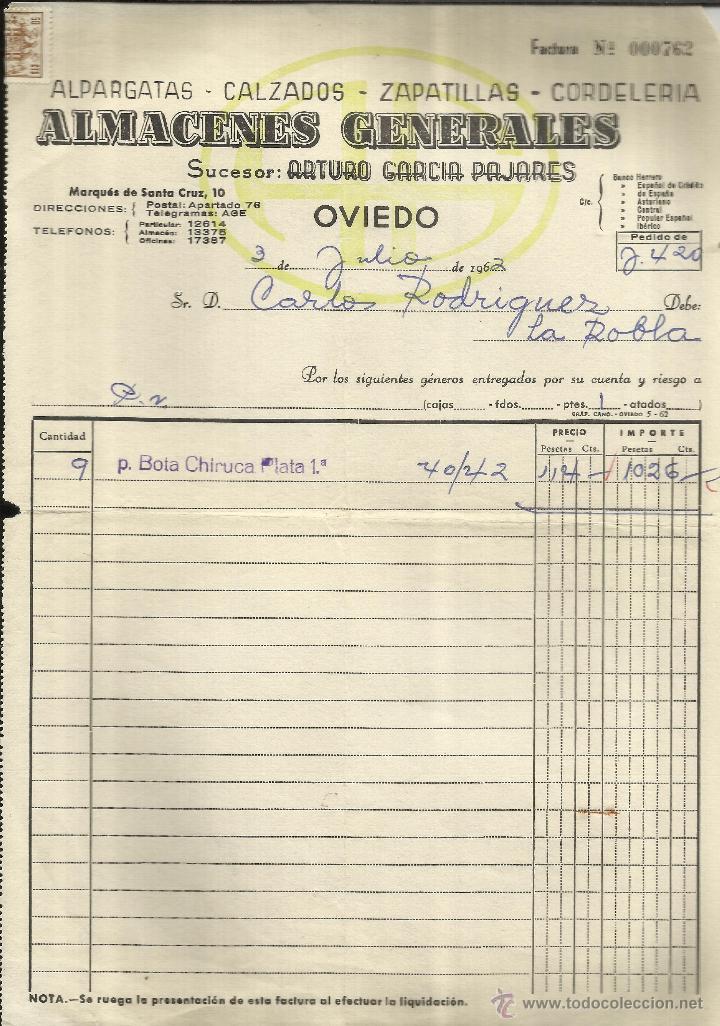 Factura Nº 000762
ALPARGATAS - CALZADOS - ZAPATILLAS - CORDELERIA
ALMACENES GENERALES
Sucesor: ARTURO GARCIA PAJARES
OVIEDO
Marqués de Santa Cruz, 10
DIRECCIONES: Postal: Apartado 76
Telegramas: AGE
TELEFONOS: Particular: 12614
Almacén: 13375
Oficinas: 17387
C/c. Banco Herrero
» Español de Crédito
» de España
» Asturiano
» Central
» Popular Español
» Ibérico
Pedido de
J. 420
3 de Julio de 1963
Sr. D. Carlos Rodriguez Debe:
La Robla
Por los siguientes géneros entregados por su cuenta y riesgo a
(cajas - fdos. - ptes. 1 - atados )
GRÁF. CANO. - OVIEDO 5 - 62
Cantidad PRECIO IMPORTE
Pesetas Cts. Pesetas Cts.
9 p. Bota Chiruca Plata 1.ª 40/42 114 - 1026 -
NOTA.—Se ruega la presentación de esta factura al efectuar la liquidación.
© www.todocoleccion.net